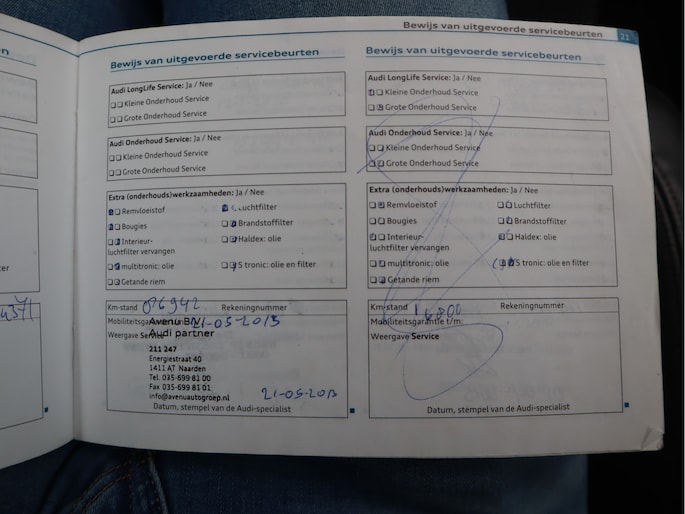 Bewijs van uitgevoerde servicebeurten 21
Bewijs van uitgevoerde servicebeurten
Audi LongLife Service: Ja / Nee
Kleine Onderhoud Service
Grote Onderhoud Service
Audi Onderhoud Service: Ja / Nee
Kleine Onderhoud Service
Grote Onderhoud Service
Extra (onderhouds)werkzaamheden: Ja / Nee
Remvloeistof
Luchtfilter
Bougies
Brandstoffilter
Interieur-
luchtfilter vervangen
Haldex: olie
multitronic: olie
S tronic: olie en filter
Getande riem
Km-stand 086942 Rekeningnummer
Mobiliteitsgarantie t/m: 21-05-2013
Avenu BV
Weergave Service
Audi partner
211 247
Energiestraat 40
1411 AT Naarden
Tel. 035-699 81 00
Fax 035-699 81 01
info@avenuautogroep.nl
21-05-2013
Datum, stempel van de Audi-specialist
Bewijs van uitgevoerde servicebeurten
Audi LongLife Service: Ja / Nee
Kleine Onderhoud Service
Grote Onderhoud Service
Audi Onderhoud Service: Ja / Nee
Kleine Onderhoud Service
Grote Onderhoud Service
Extra (onderhouds)werkzaamheden: Ja / Nee
Remvloeistof
Luchtfilter
Bougies
Brandstoffilter
Interieur-
luchtfilter vervangen
Haldex: olie
multitronic: olie
S tronic: olie en filter
Getande riem
Km-stand Rekeningnummer
Mobiliteitsgarantie t/m:
Weergave Service
Datum, stempel van de Audi-specialist